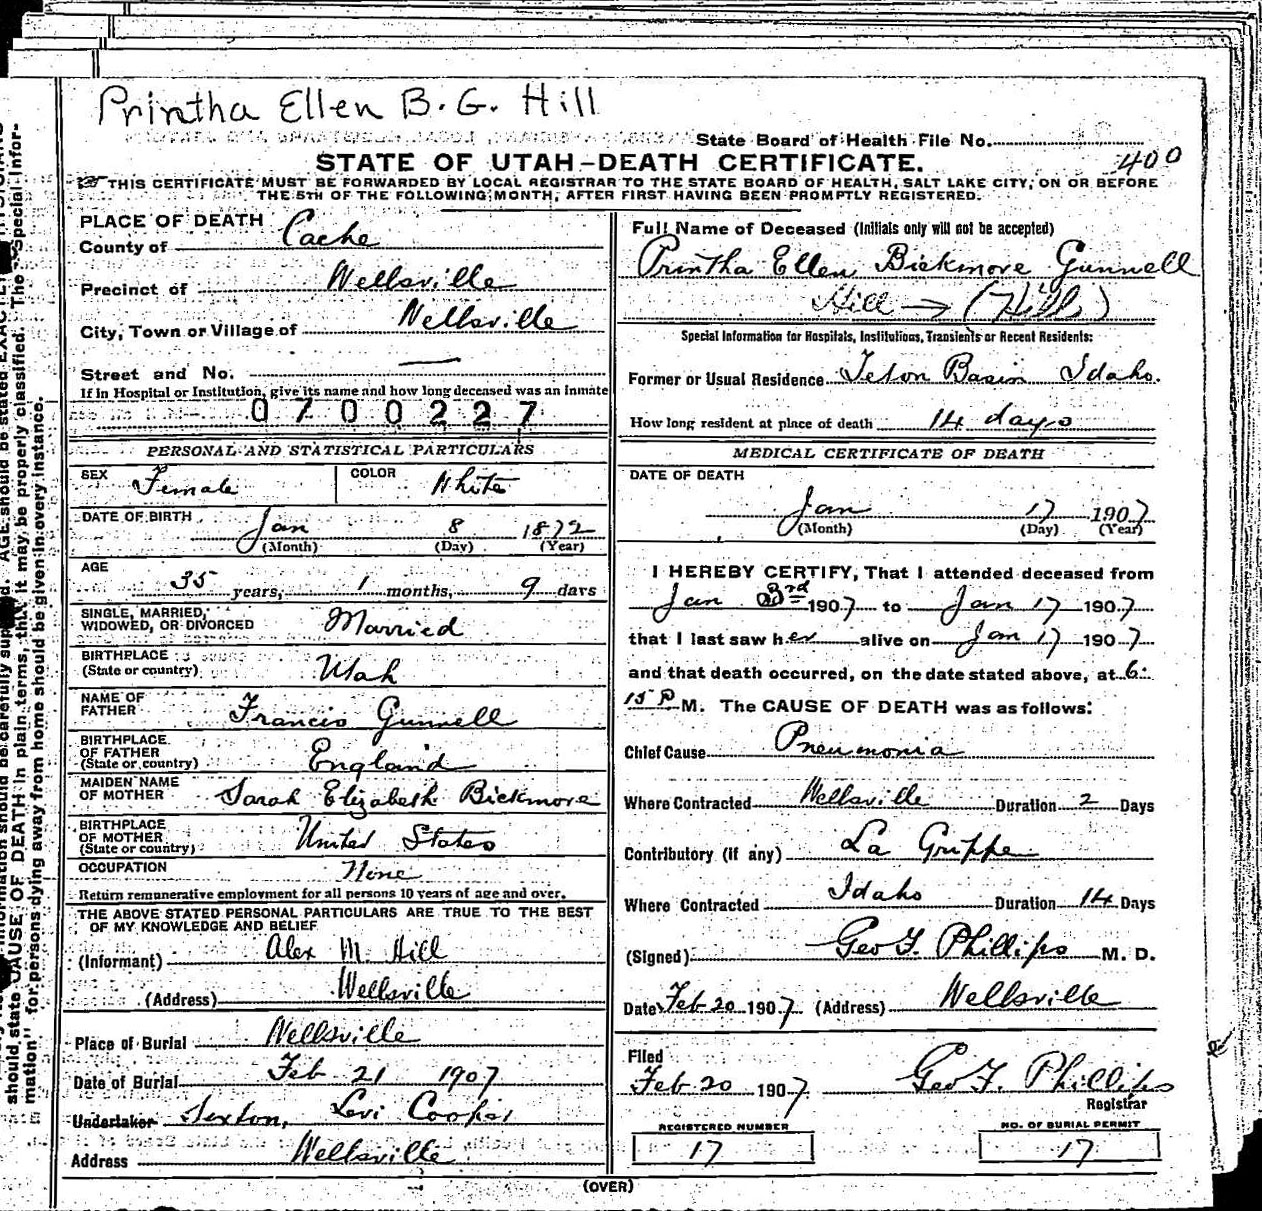 Printha Ellen B. G. Hill
State Board of Health File No.
400
STATE OF UTAH-DEATH CERTIFICATE.
THIS CERTIFICATE MUST BE FORWARDED BY LOCAL REGISTRAR TO THE STATE BOARD OF HEALTH, SALT LAKE CITY, ON OR BEFORE
THE 5TH OF THE FOLLOWING MONTH, AFTER FIRST HAVING BEEN PROMPTLY REGISTERED.
PLACE OF DEATH
County of Cache
Precinct of Wellsville
City, Town or Village of Wellsville
Street and No. —
If in Hospital or Institution, give its name and how long deceased was an inmate
0700227
PERSONAL AND STATISTICAL PARTICULARS
SEX Female COLOR White
DATE OF BIRTH Jan 8 1872
(Month) (Day) (Year)
AGE
35 years, 1 months, 9 days
SINGLE, MARRIED,
WIDOWED, OR DIVORCED Married
BIRTHPLACE
(State or country) Utah
NAME OF
FATHER Francis Gunnell
BIRTHPLACE
OF FATHER
(State or country) England
MAIDEN NAME
OF MOTHER Sarah Elizabeth Bickmore
BIRTHPLACE
OF MOTHER
(State or country) United States
OCCUPATION None
Return remunerative employment for all persons 10 years of age and over.
THE ABOVE STATED PERSONAL PARTICULARS ARE TRUE TO THE BEST
OF MY KNOWLEDGE AND BELIEF
(Informant) Alex M. Hill
(Address) Wellsville
Place of Burial Wellsville
Date of Burial Feb 21 1907
Undertaker Sexton, Levi Cooper
Address Wellsville
Full Name of Deceased (Initials only will not be accepted)
Printha Ellen Bickmore Gunnell
Hill → (Hill)
Special Information for Hospitals, Institutions, Transients or Recent Residents:
Former or Usual Residence Teton Basin Idaho.
How long resident at place of death 14 days
MEDICAL CERTIFICATE OF DEATH
DATE OF DEATH
Jan 17 1907
(Month) (Day) (Year)
I HEREBY CERTIFY, That I attended deceased from
Jan 3rd 1907 to Jan 17 1907
that I last saw her alive on Jan 17 1907
and that death occurred, on the date stated above, at 6:
15 P M. The CAUSE OF DEATH was as follows:
Chief Cause Pneumonia
Where Contracted Wellsville Duration 2 Days
Contributory (if any) La Grippe
Where Contracted Idaho Duration 14 Days
(Signed) Geo F. Phillips M. D.
Date Feb 20 1907 (Address) Wellsville
Filed
Feb 20 1907 Geo F. Phillips
Registrar
REGISTERED NUMBER NO. OF BURIAL PERMIT
17 17
(OVER)